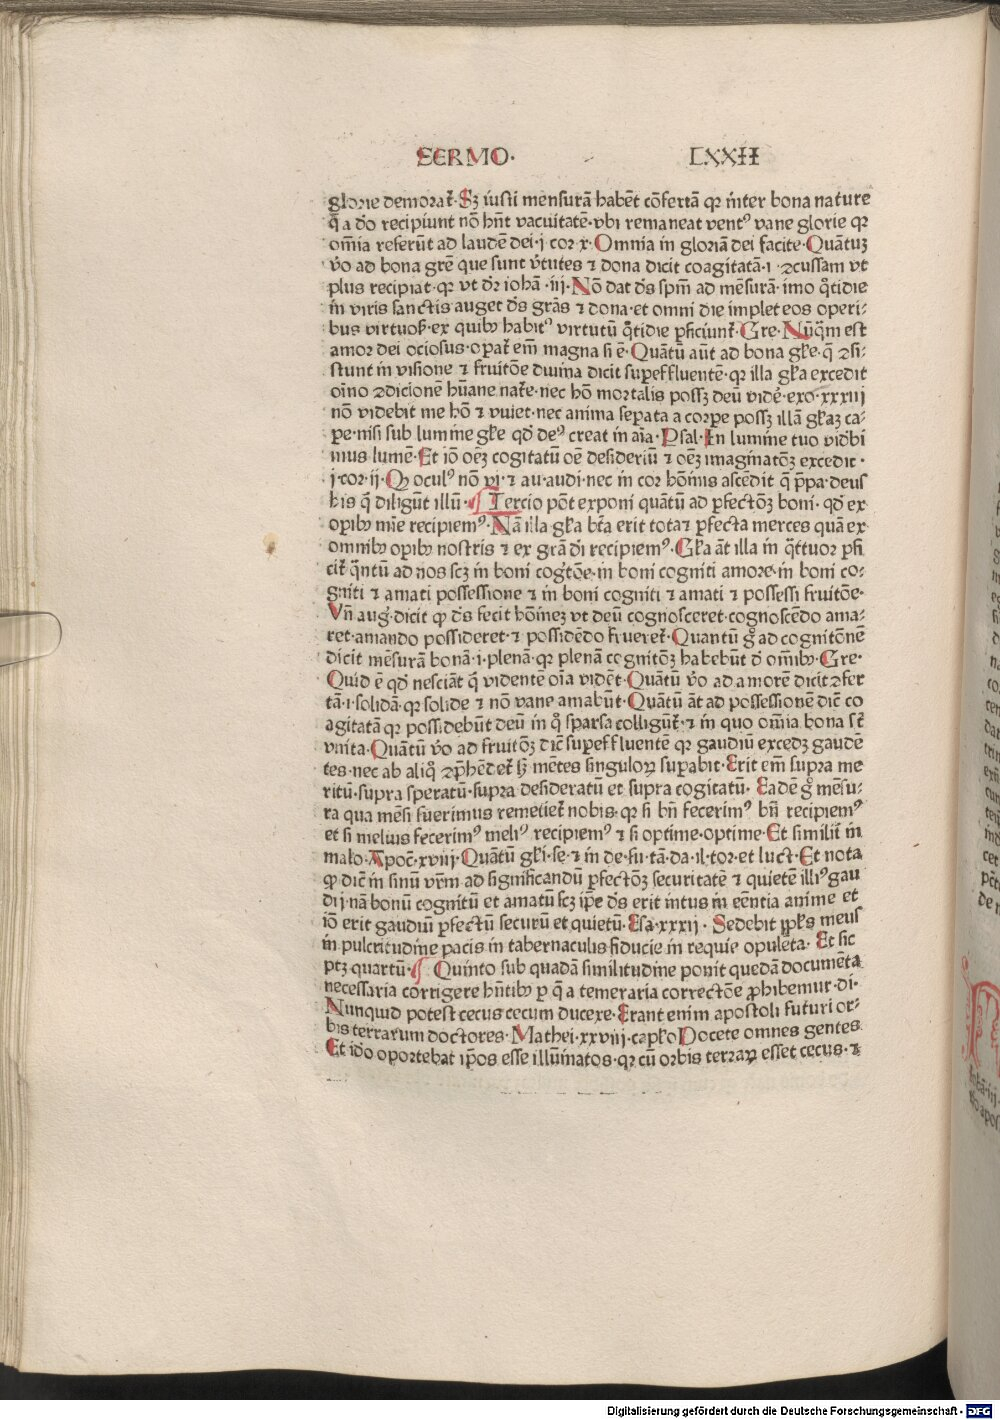 SERMO· LXXII
glorie demorat᷑· Sꝫ iusti mensurā habēt cōfertā qꝛ inter bona nature
q̄ a dō recipiunt nō hn̄t vacuitatē· vbi remaneat ventꝰ vane glorie qꝛ
om̄ia referūt ad laudē dei· j· cor· x· Omnia in gloriā dei facite· Quātuꝫ
v̄o ad bona grē que sunt v̄tutes ⁊ dona dicit coagitatā· i· ꝯcussam vt
plus recipiat· qꝛ vt dr̄ iohā· iij· Nō dat dn̄s spm̄ ad mēsurā· imo q̄tidie
in viris sanctis auget dn̄s grās ⁊ dona· et omni die implet eos operi-
bus virtuoẜ· ex quibꝰ habitꝰ virtutū q̄tidie ꝑficiunt᷑· Gre· Nūq̄m est
amor dei ociosus· oꝑat᷑ em̄ magna si ē· Quātū aūt ad bona gl̄ie· q̄ ꝯsi-
stunt in visione ⁊ fruitōe diuina dicit suꝑeffluentē· qꝛ illa gl̄ia excedit
oīno ꝯdicionē hūane nat᷑e· nec hō mortalis possꝫ deū vidē᷑· exo· xxxiij
nō videbit me hō ⁊ viuet· nec anima seꝑata a corꝑe possꝫ illā gl̄iaꝫ ca-
pe· nisi sub lumine gl̄ie qd̄ deꝰ creat in aīa· Psal· In lumine tuo videbi
mus lumē· Et iō oēꝫ cogitatū oē desideriū ⁊ oēꝫ imaginatōꝫ excedit·
j· cor· ij· Qꝫ oculꝰ nō vi· ⁊ au· audi· nec in cor hōinis ascēdit q̄ p̄pa· deus
his q̄ diligūt illū· ¶ Tercio pōt exponi quātū ad ꝑfectōꝫ boni· qd̄ ex
oꝑibꝰ mīe recipiemꝰ· Nā illa gl̄ia bt̄a erit tota ⁊ ꝑfecta merces quā ex
omnibꝰ oꝑibꝰ nostris ⁊ ex grā dī recipiemꝰ· Gl̄ia āt illa in q̄ttuor ꝑfi
cit᷑ q̄ntū ad nos scꝫ in boni cog᷑tōe· in boni cogniti amore· in boni co-
gniti ⁊ amati possessione ⁊ in boni cogniti ⁊ amati ⁊ possessi fruitōe·
Vn̄ aug᷑· dicit ꝙ dn̄s fecit hōineꝫ vt deū cognosceret· cognoscēdo ama-
ret· amando possideret· ⁊ possidēdo frueret᷑· Quantū g̊ ad cognitōnē
dicit mēsurā bonā· i· plenā· qꝛ plenā cognitōꝫ habebūt d̄ om̄ibꝰ· Gre·
Quid ē qd̄ nesciāt q̄ videntē oīa vidēt· Quātū v̄o ad amorē dicit ꝯfer
tā· i· solidā· qꝛ solide ⁊ nō vane amabūt· Quātū āt ad possessionē dicit co
agitatā qꝛ possidebūt deū in q̊ sparsa colligūt᷑· ⁊ in quo om̄ia bona st̄
vnita· Quātū v̄o ad fruitōꝫ dic̄ suꝑeffluentē qꝛ gaudiū excedꝫ gaudē
tes· nec ab aliq̊ ꝯp̄hēdet᷑ sꝫ mētes singuloꝝ suꝑabit· Erit em̄ supra me
ritū· supra speratū· supra desideratū et supra cogitatū· Eadē g̊ mēsu-
ra qua mēsi fuerimus remetiet᷑ nobis· qꝛ si bn̄ fecerimꝰ bn̄ recipiemꝰ
et si melius fecerimꝰ meliꝰ recipiemꝰ ⁊ si optime· optime· Et similit᷑ in
malo· Apoc̄· xviij· Quātū gl̄i· se· ⁊ in de· fu· tā· da· il· tor· et luct· Et nota
ꝙ dic̄ in sinū vr̄m ad significandū ꝑfectōꝫ securitatē ⁊ quietē illiꝰ gau
dij· nā bonū cognitū et amatū scꝫ ip̄e dn̄s erit intus in eēntia anime et
iō erit gaudiū ꝑfectū securū et quietū· Esa· xxxij· Sedebit pp̄ls meus
in pulcritudine pacis in tabernaculis fiducie in requie opulēta· Et sic
ptꝫ quartū· ¶ Quinto sub quadā similitudine ponit quedā documēta
necessaria corrigere hn̄tibꝰ ꝑ q̄ a temeraria correctōe ꝓhibemur· di·
Nunquid potest cecus cecum ducere· Erant enim apostoli futuri or-
bis terrarum doctores· Mathei· xxviij· capl̄o Docete omnes gentes
Et ido oportebat ip̄os esse illūinatos· qꝛ cū orbis terraꝝ esset cecus· ⁊